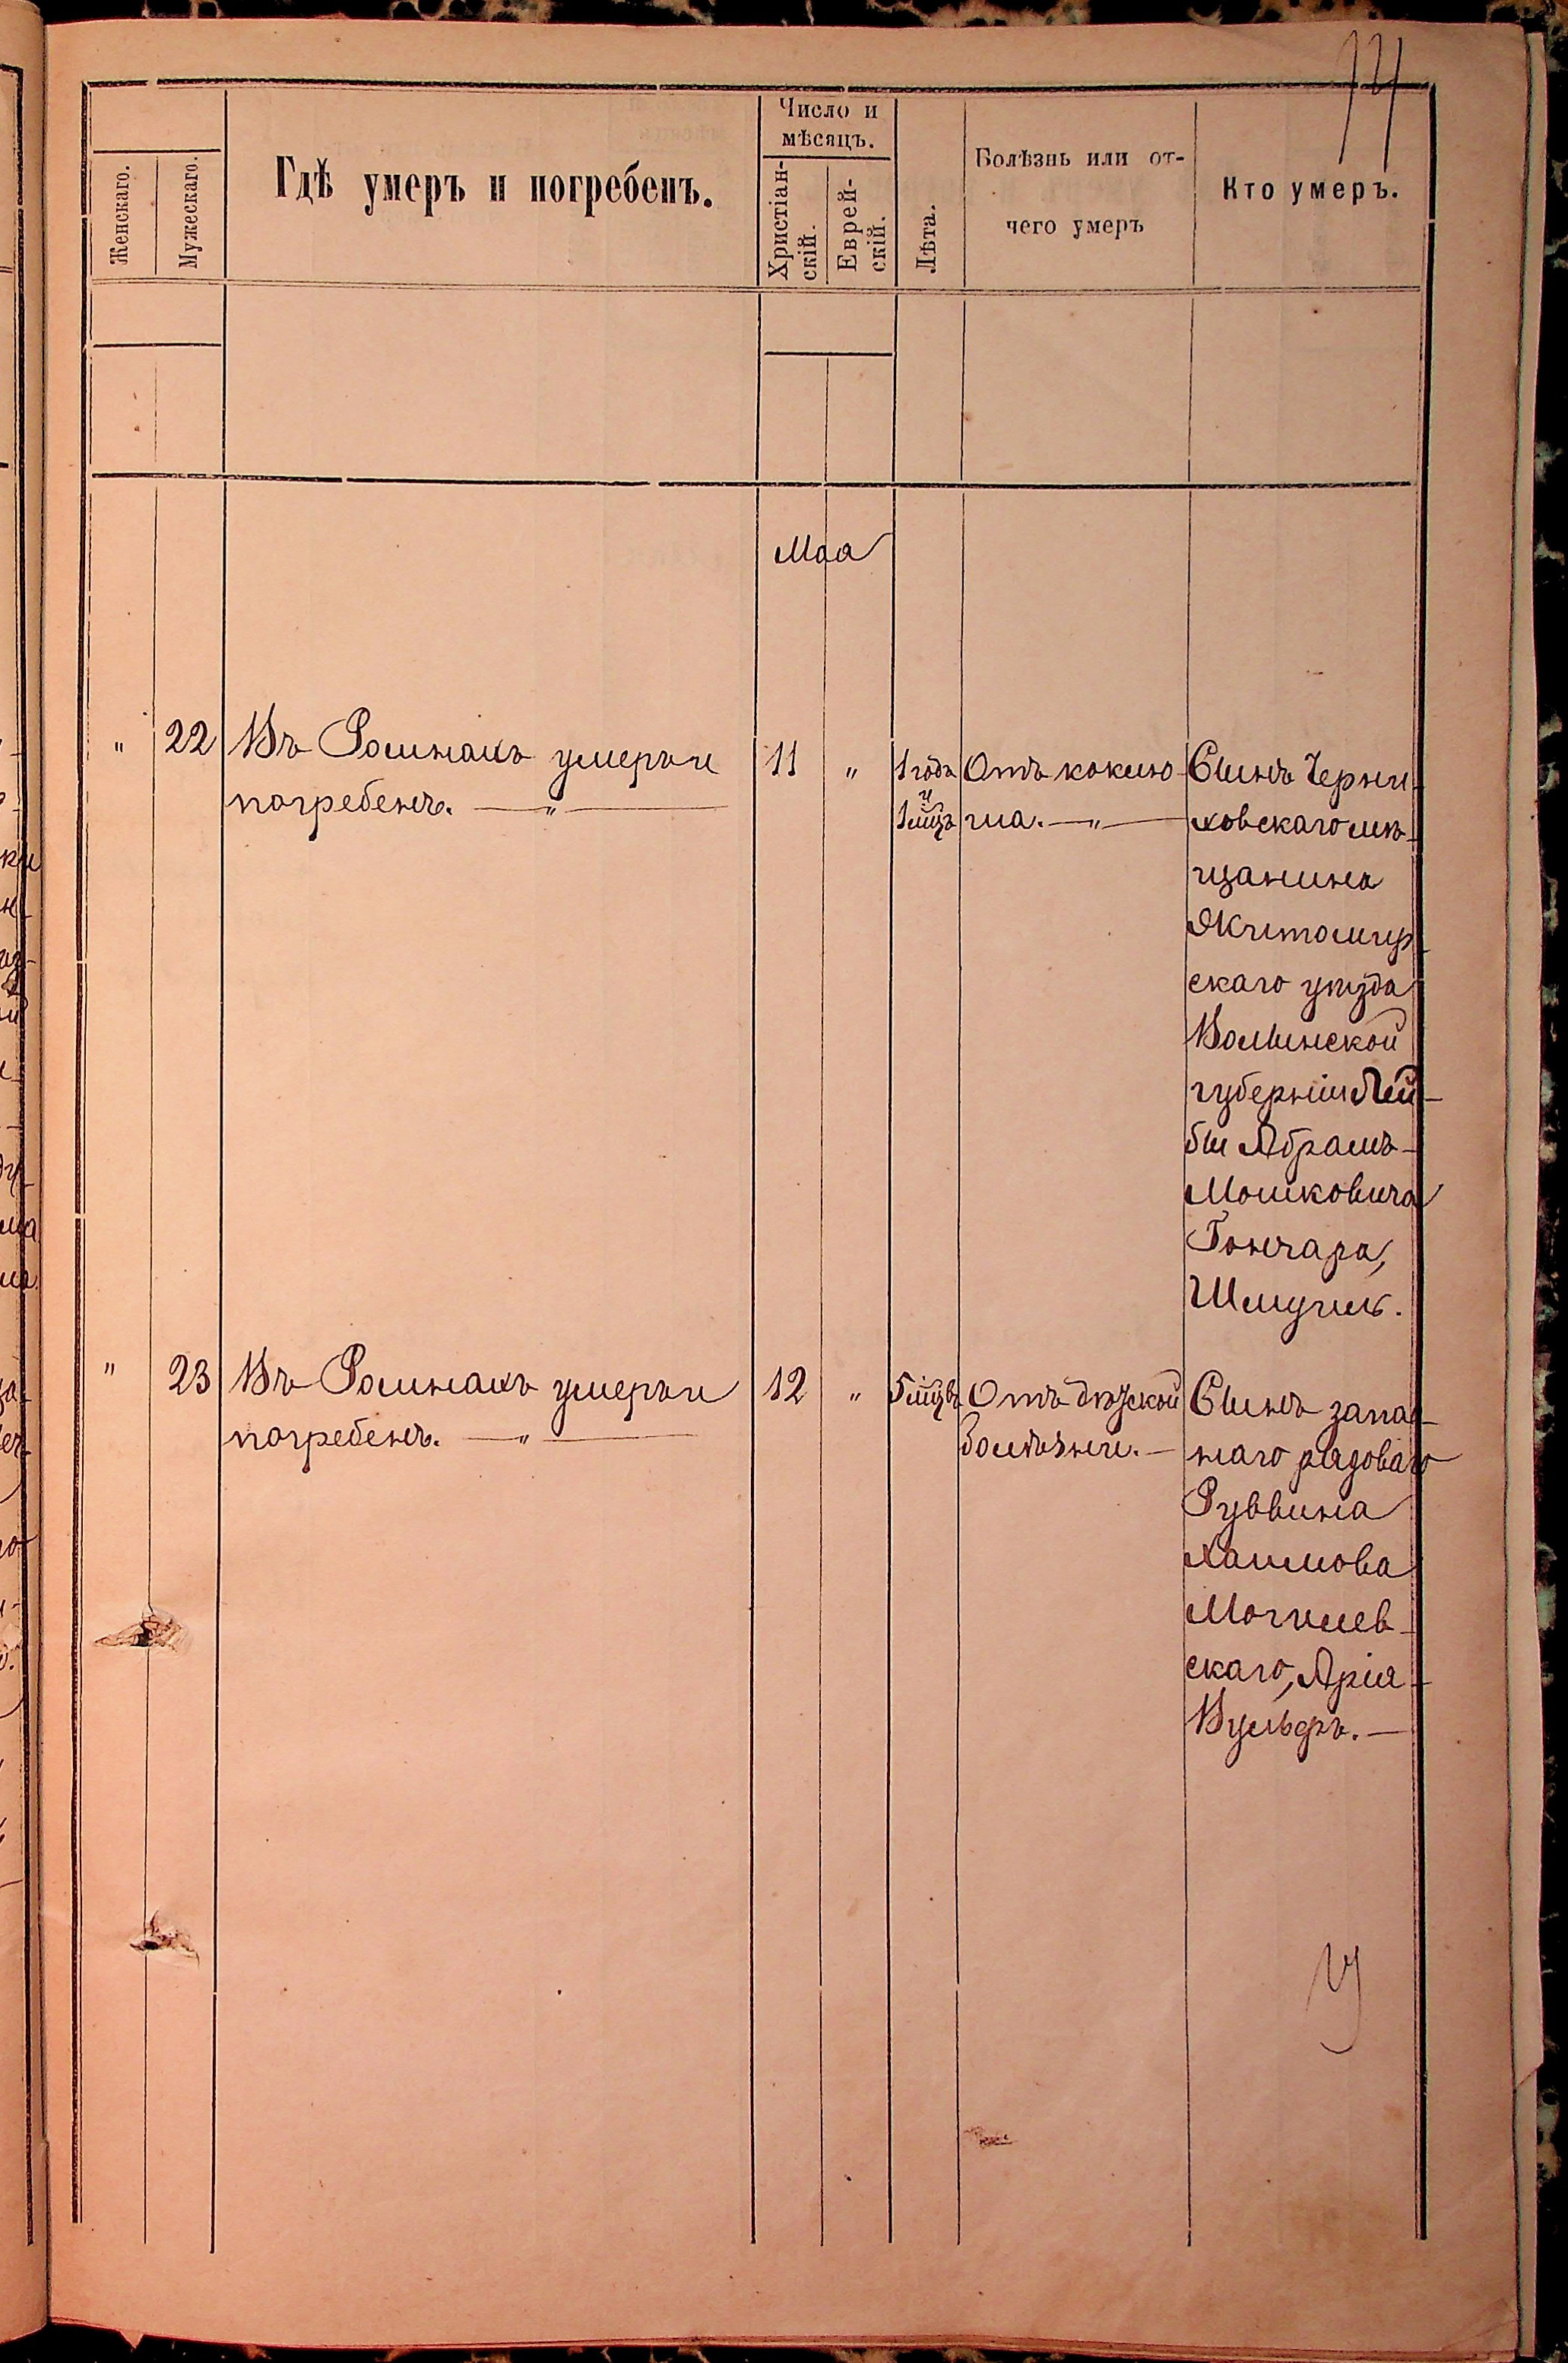 14
Женскаго.
Мужескаго.
Гдѣ умеръ и погребенъ.
Число и
мѣсяцъ.
Христіан-
скій.
Еврей-
скій.
Лѣта.
Болѣзнь или от-
чего умеръ
Кто умеръ.
Мая
" 22 Въ Ромнахъ умеръ и
погребенъ. — " —
11 "
1 годъ
и
1 мцъ
Отъ коклю-
ша. — " —
Сынъ Черня-
ховскаго мѣ-
щанина
Житомир-
скаго уѣзда
Волынской
губерніи Лей-
бы Абрамъ-
Мошковича
Гончара,
Шмуиль.
" 23 Въ Ромнахъ умеръ и
погребенъ. — " —
12 "
5 мцвъ
Отъ дѣтской
болѣзни. —
Сынъ запас-
наго рядоваго
Руввина
Хаимова
Могилев-
скаго, Арія-
Вульфъ. —